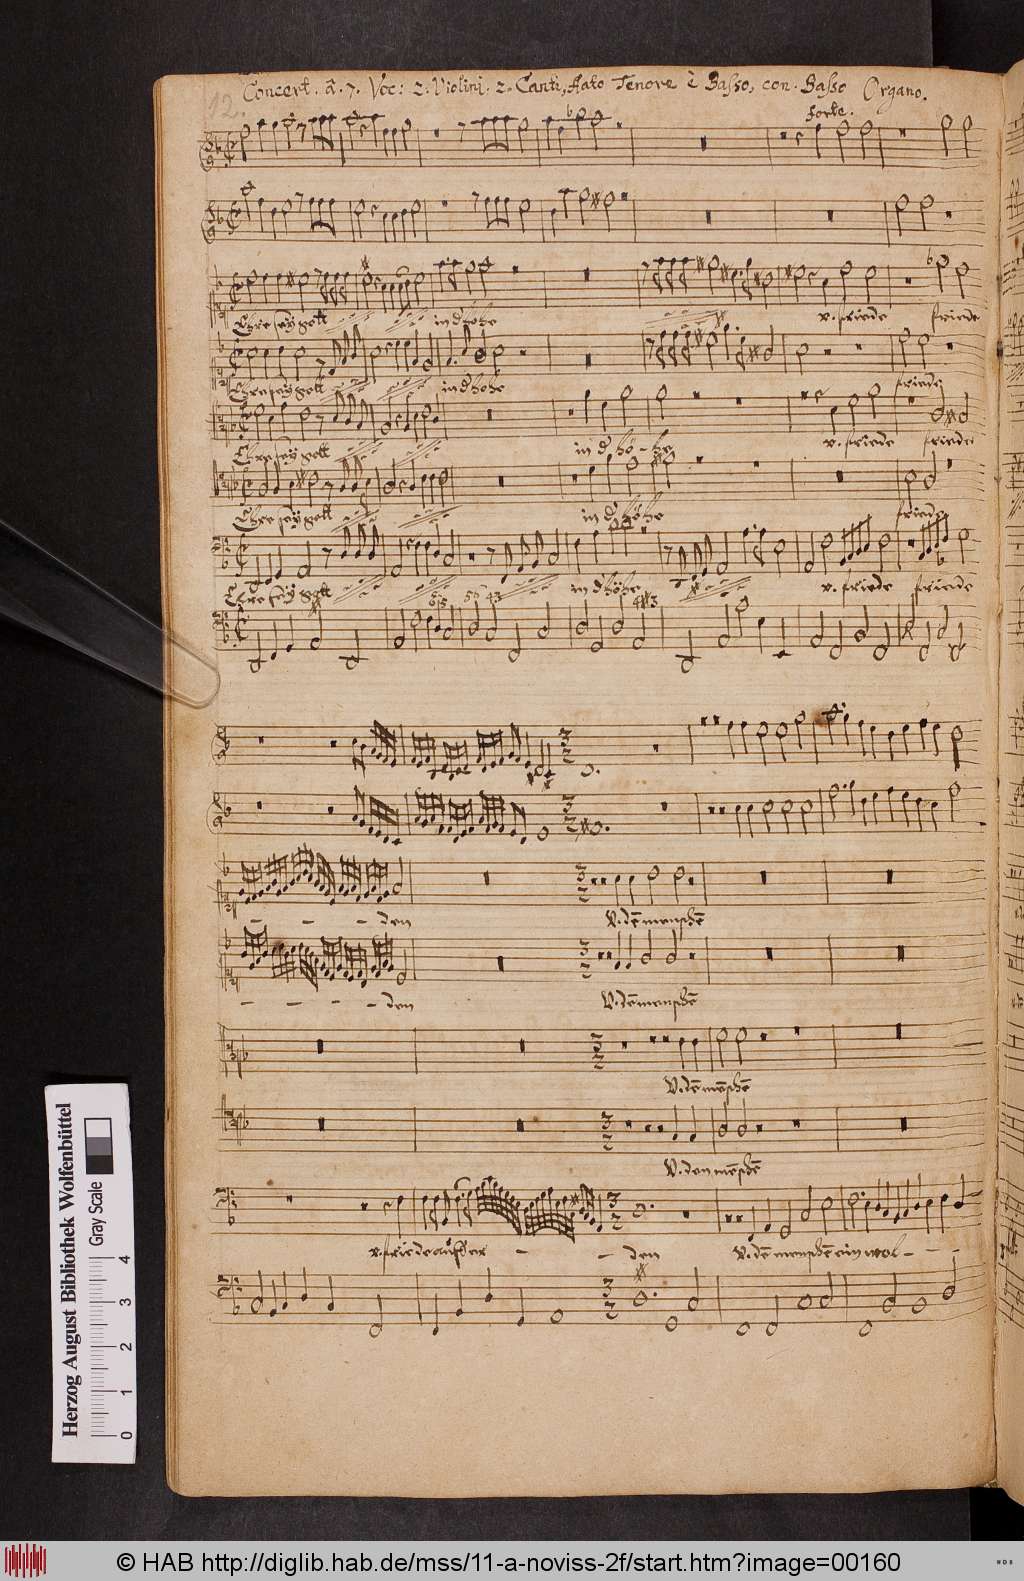 12.
Concert. â. 7. Voc: 2. Violini. 2. Canti, Alto Tenore è Basso, con. Basso Organo.
forte.
Ehre sey gott in d höhe v. friede friede
Ehre sey gott in d höhe friede
Ehre sey gott in d' hö - he v. friede friede
Ehre sey gott in d' höhe friede
Ehre sey gott in d höhe v. friede friede
den V. dē menschē
den V. dē menschē
V. dē mēschē
V. den mēschē
v. friede auff der den V. dē menschē ein wol
Herzog August Bibliothek Wolfenbüttel
Gray Scale
0 1 2 3 4
© HAB http://diglib.hab.de/mss/11-a-noviss-2f/start.htm?image=00160